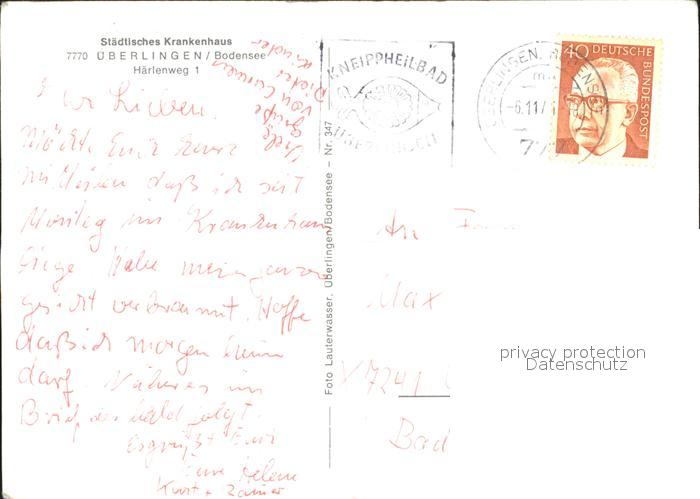 Städtisches Krankenhaus
7770 ÜBERLINGEN / Bodensee
Härlenweg 1
Ihr Lieben.
Möchte Euch kurz
mitteilen daß ich seit
Montag im Krankenhaus
liege. Habe mein ganzes
gesicht verbrannt. Hoffe
daß ich morgen heim
darf. Näheres im
Brief der bald folgt.
Es grüßt Euch
Eure Helene
Kurt +
Viele
Grüße
von
Dieter
Kinder
Foto Lauterwasser, Überlingen/Bodensee – Nr. 347
KNEIPPHEILBAD
ÜBERLINGEN
ÜBERLINGEN, BODENSEE
-6.11.7
777
40 DEUTSCHE
BUNDESPOST
An Fam
Max
V 7241
Bad
privacy protection
Datenschutz